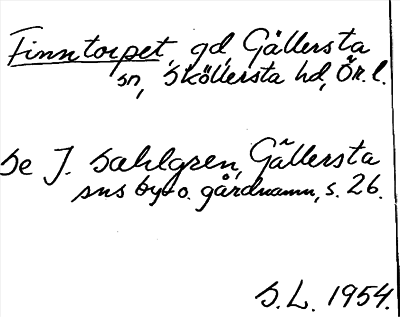 Finntorpet, gd, Gällersta
sn, Sköllersta hd, Ör. l.
Se J. Sahlgren, Gällersta
sns by- o. gårdnamn, s. 26.
S. L. 1954.